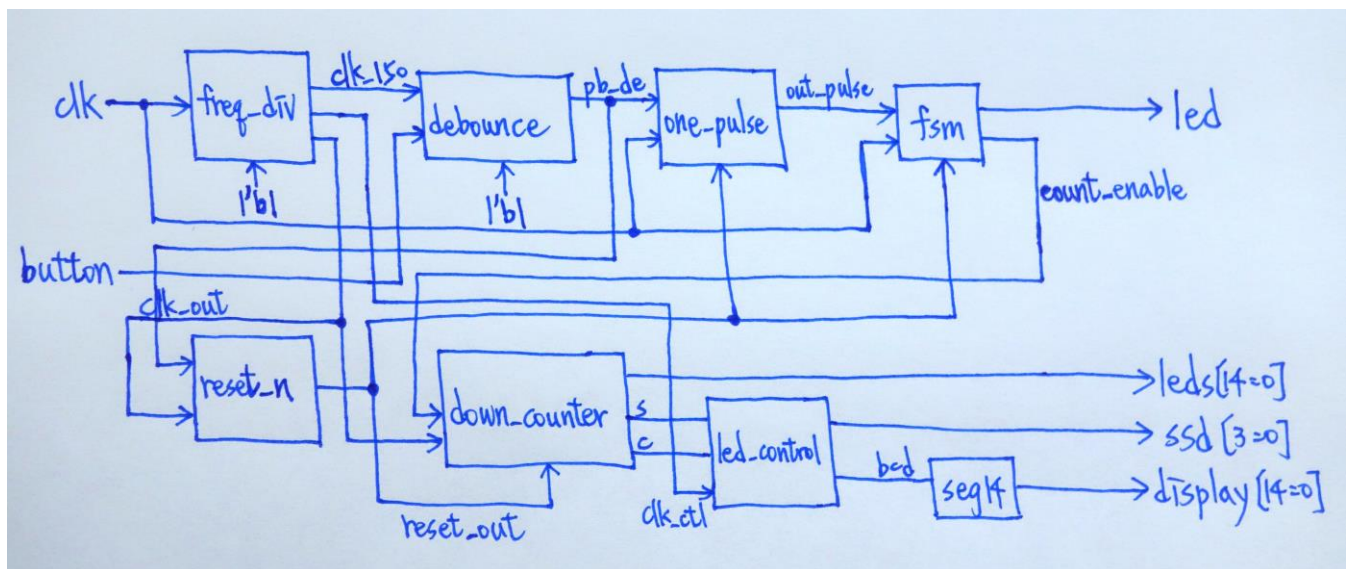 clk
freq_div
clk_150
debounce
pb_de
one_pulse
out_pulse
fsm
led
1'b1
1'b1
count_enable
button
clk_out
reset_n
down_counter
s
c
led_control
leds[14=0]
ssd[3=0]
bcd
seg14
display[14=0]
reset_out
clk_ctl